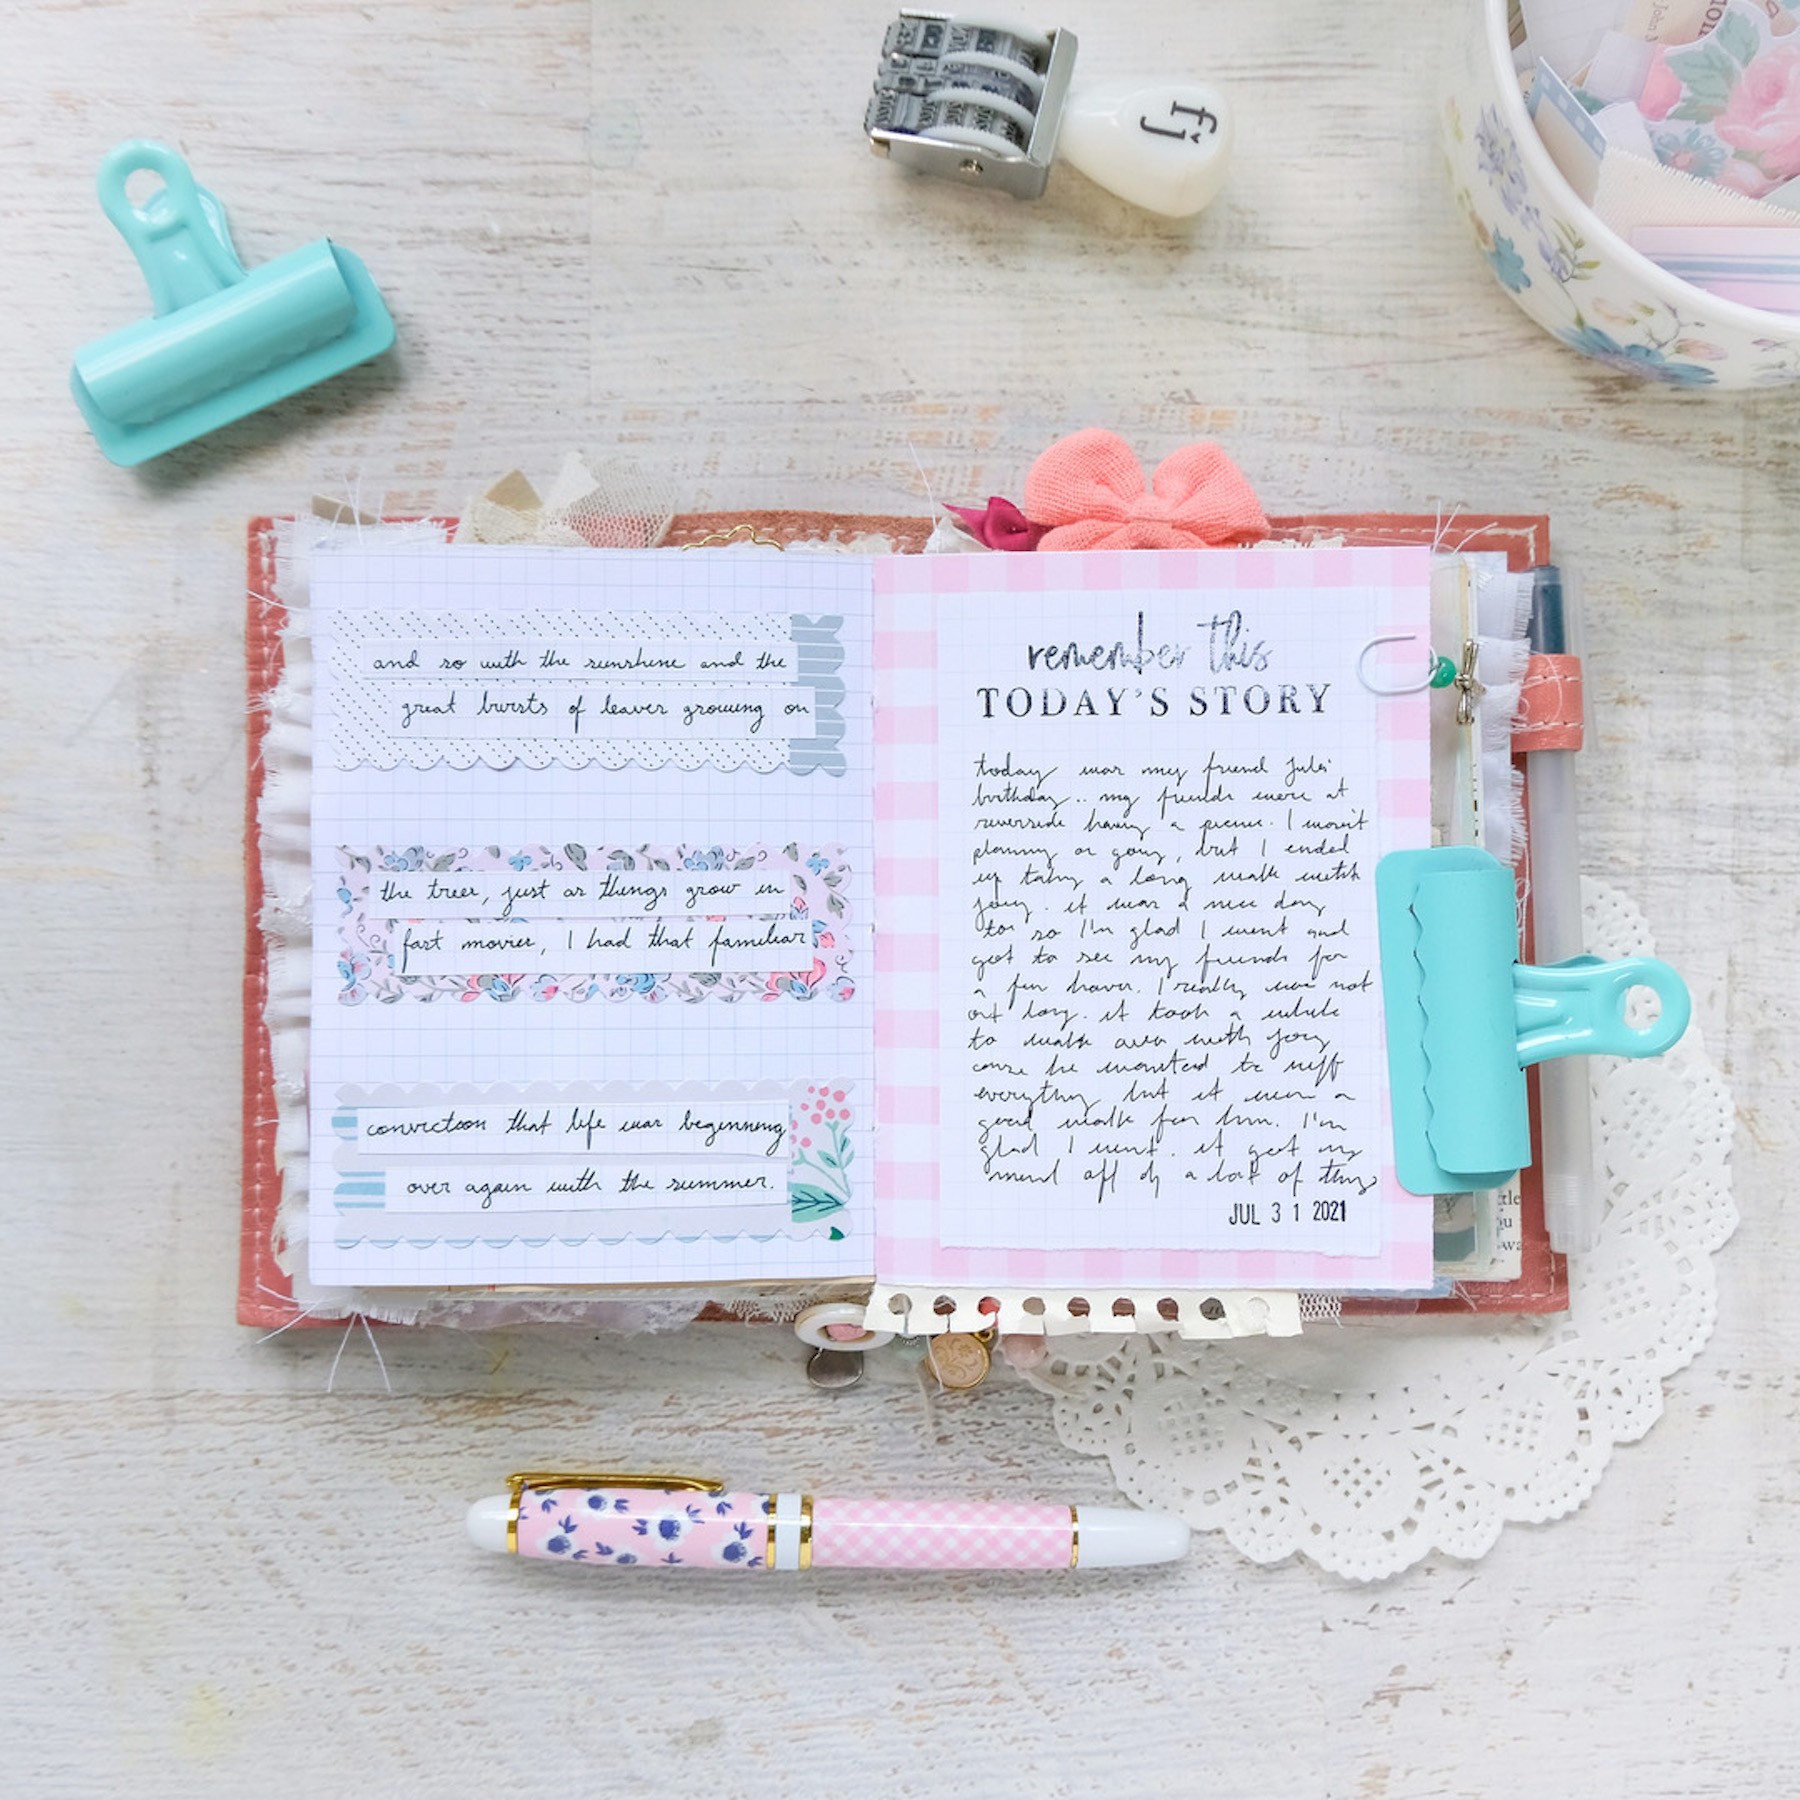 fj
and so with the sunshine and the
great bursts of leaves growing on
the trees, just as things grow in
fast movies, I had that familiar
conviction that life was beginning
over again with the summer.
remember this
TODAY'S STORY
today was my friend Jules'
birthday.. my friends were at
riverside having a picnic. I wasn't
planning on going, but I ended
up taking a long walk with
joey. it was a nice day
too so I'm glad I went and
got to see my friends for
a few hours. I really was not
out long. it took a while
to walk over with joey
cause he wanted to sniff
everything but it was a
good walk for him. I'm
glad I went. it got my
mind off of a lot of things
JUL 3 1 2021